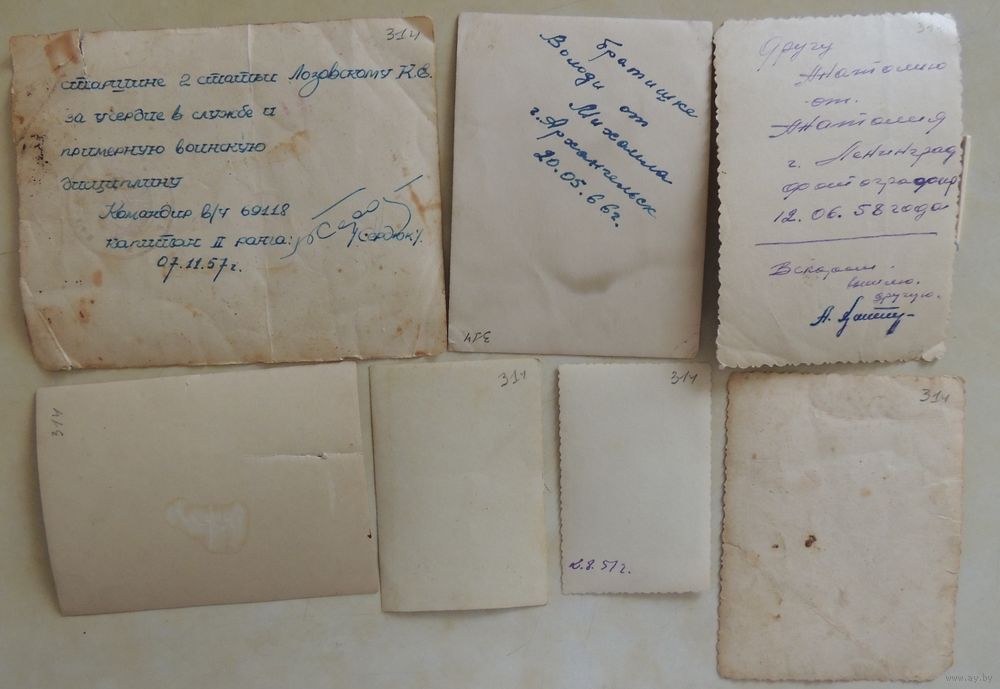 314
старшине 2 статьи Лозовскому К.Е.
за усердие в службе и
примерную воинскую
дисциплину
Командир в/ч 69118
капитан II ранга: /Сердюк/.
07.11.57г.
братишке
Володи от
Михаила
г. Архангельск
20.05.66г.
314
314
Другу
Анатолию
от.
Анатолия
г. Ленинград
12.06.58 года
другую.
А.
314
314
314
.8.57г.
314
www.ay.by